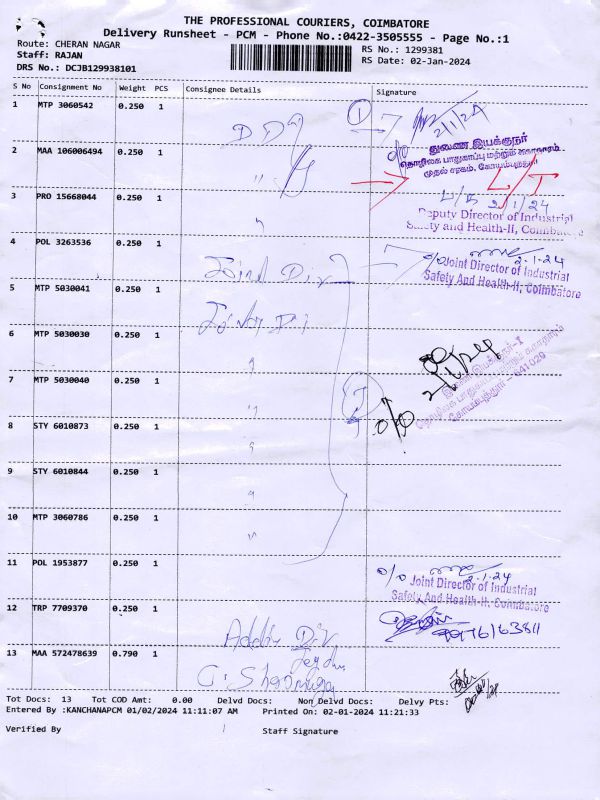 THE PROFESSIONAL COURIERS, COIMBATORE
Delivery Runsheet - PCM - Phone No.:0422-3505555 - Page No.:1
Route: CHERAN NAGAR
RS No.: 1299381
Staff: RAJAN
RS Date: 02-Jan-2024
DRS No.: DCJB129938101
S No Consignment No Weight PCS Consignee Details Signature
1 MTP 3060542 0.250 1
2/1/24
2 MAA 106006494 0.250 1 "
துணை இயக்குநர்
தொழிலக பாதுகாப்பு மற்றும் சுகாதாரம்
3 PRO 15668044 0.250 1 "
2/1/24
Deputy Director of Industrial
Safety and Health-II, Coimbatore
4 POL 3263536 0.250 1 Joint Dir
2.1.24
Joint Director of Industrial
Safety And Health-II, Coimbatore
5 MTP 5030041 0.250 1
6 MTP 5030030 0.250 1 "
2/1/24
7 MTP 5030040 0.250 1 "
641029
8 STY 6010873 0.250 1 "
9 STY 6010844 0.250 1 "
10 MTP 3060786 0.250 1 "
11 POL 1953877 0.250 1
2.1.24
Joint Director of Industrial
Safety And Health-II, Coimbatore
12 TRP 7709370 0.250 1 Addl Dir
13 MAA 572478639 0.790 1
Tot Docs: 13 Tot COD Amt: 0.00 Delvd Docs: Non Delvd Docs: Delvy Pts:
Entered By :KANCHANAPCM 01/02/2024 11:11:07 AM Printed On: 02-01-2024 11:21:33
Verified By Staff Signature